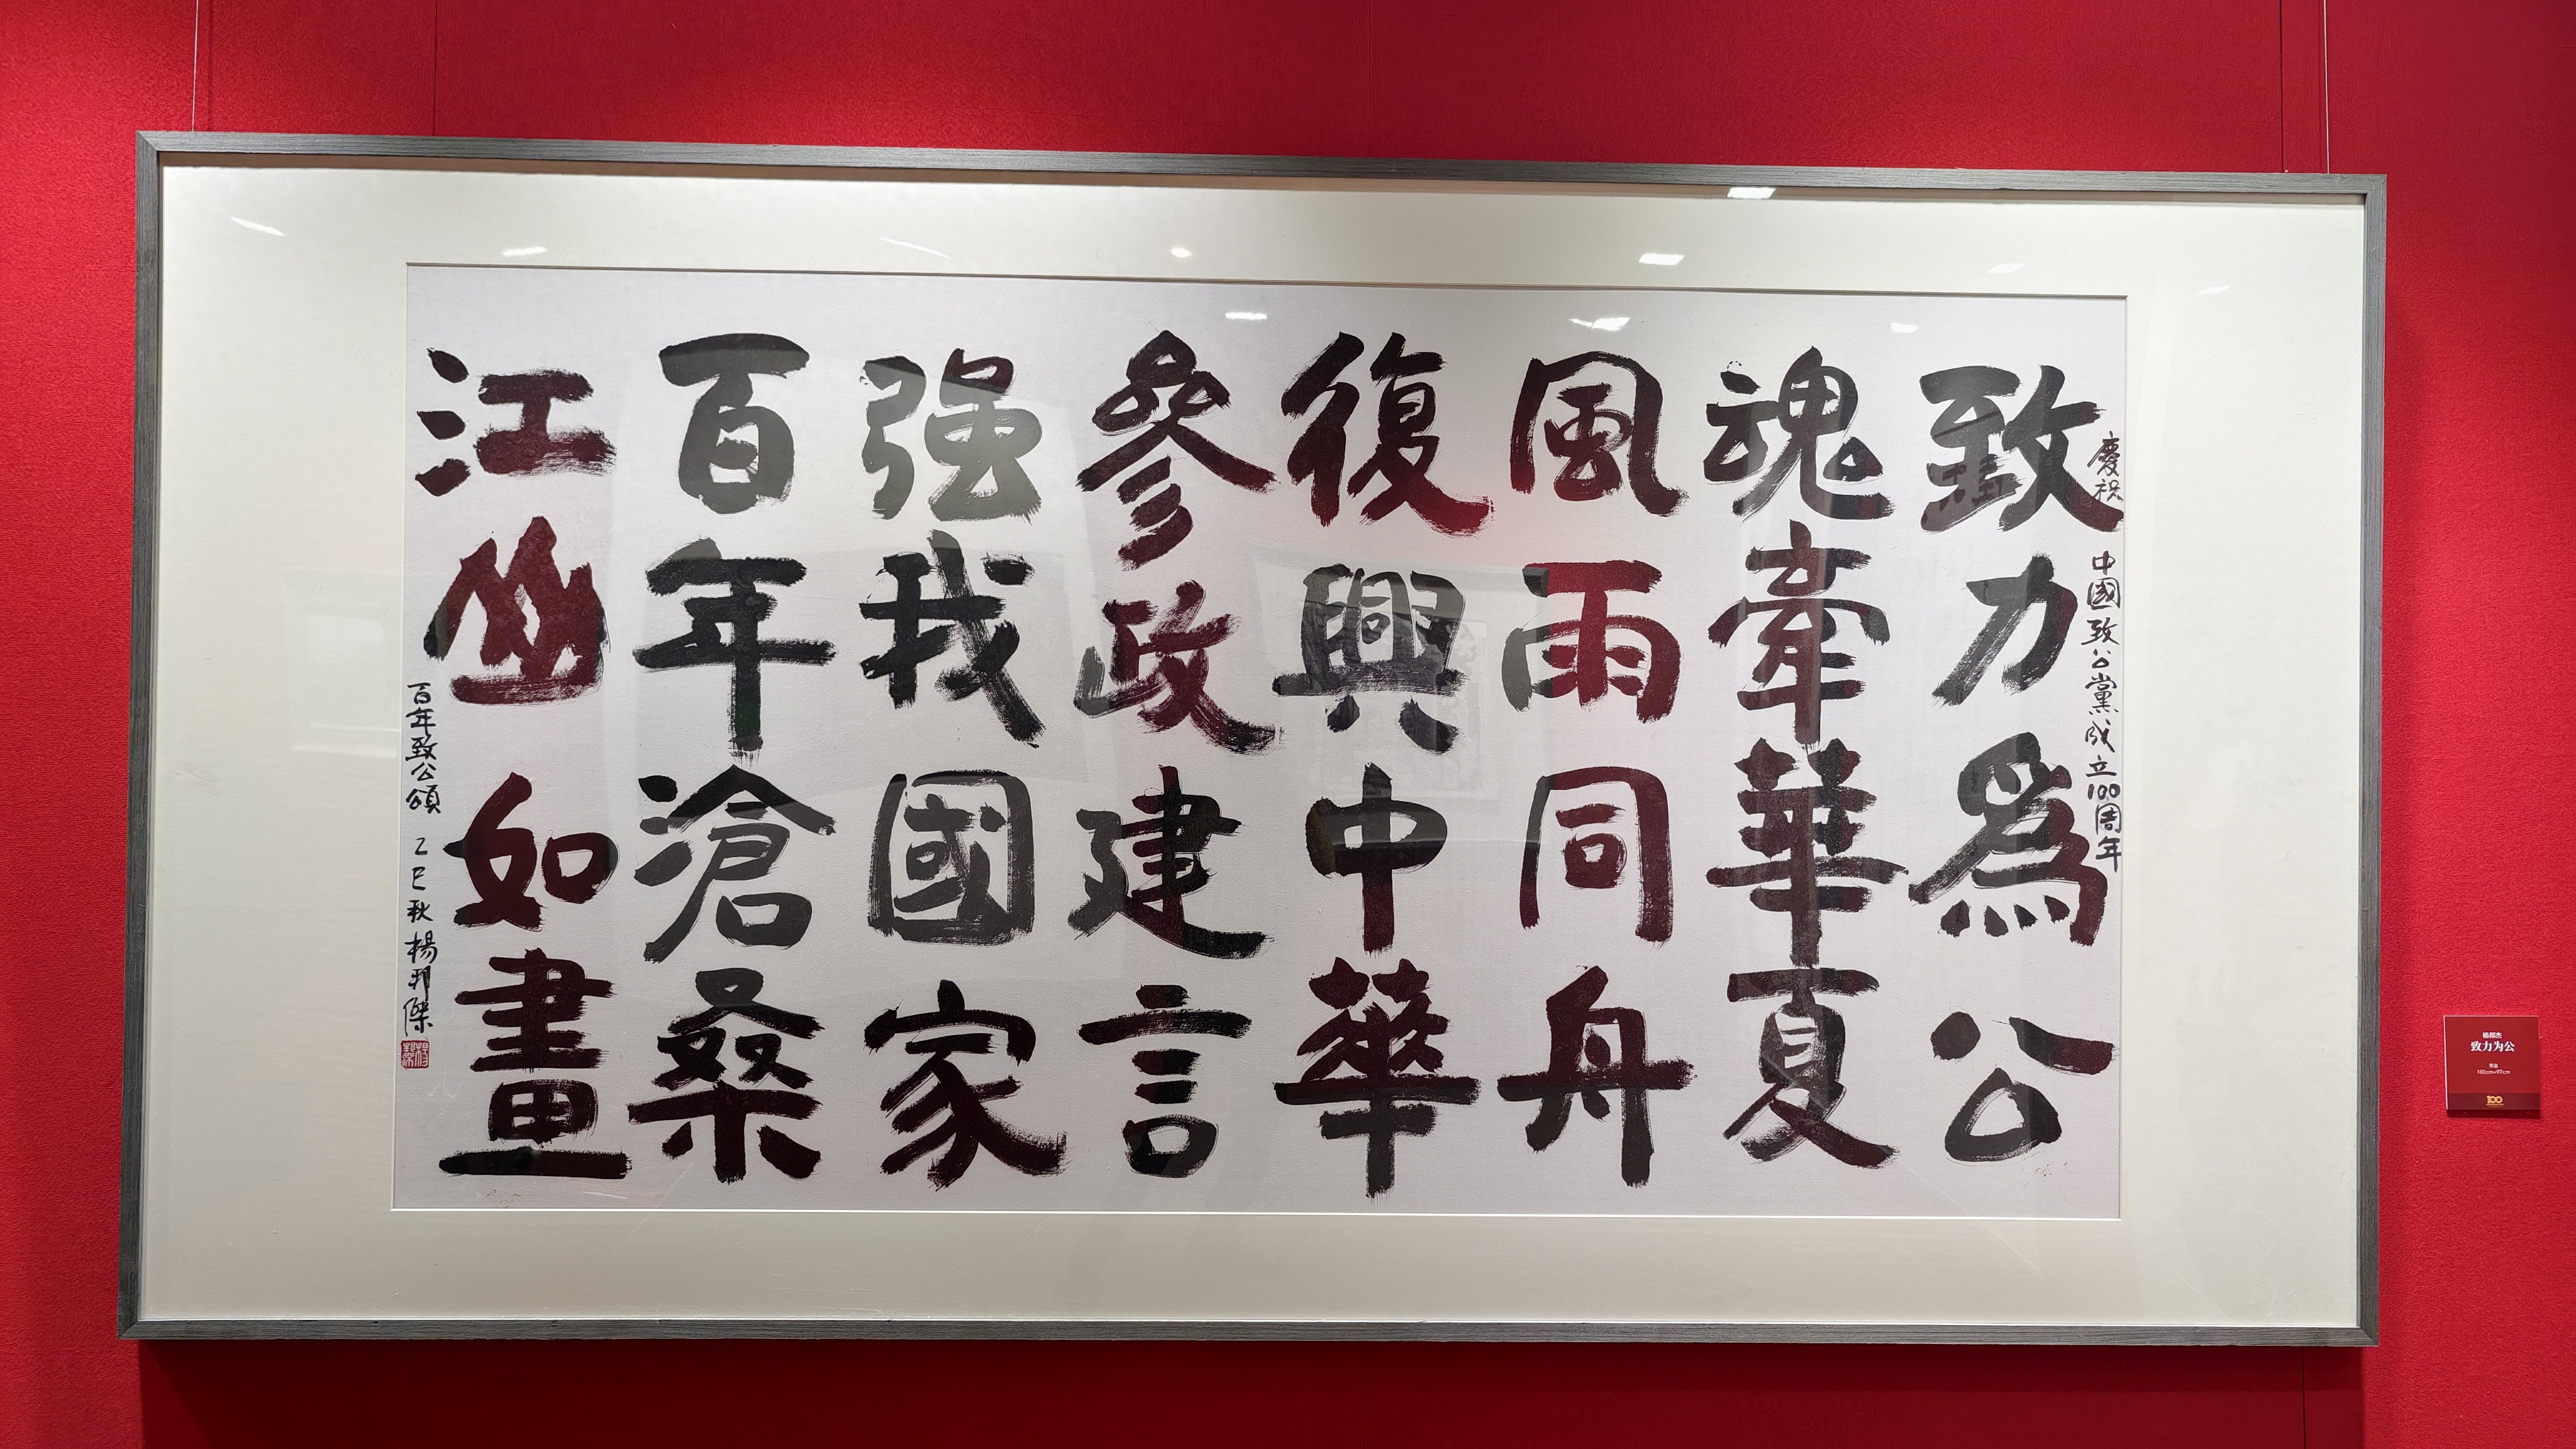 慶祝中國致公黨成立100周年
致力爲公
魂牽華夏
風雨同舟
復興中華
參政建言
强我國家
百年滄桑
江山如畫
百年致公頌 乙巳秋 楊邦傑
杨邦杰
致力为公
书法
180cm×97cm
100